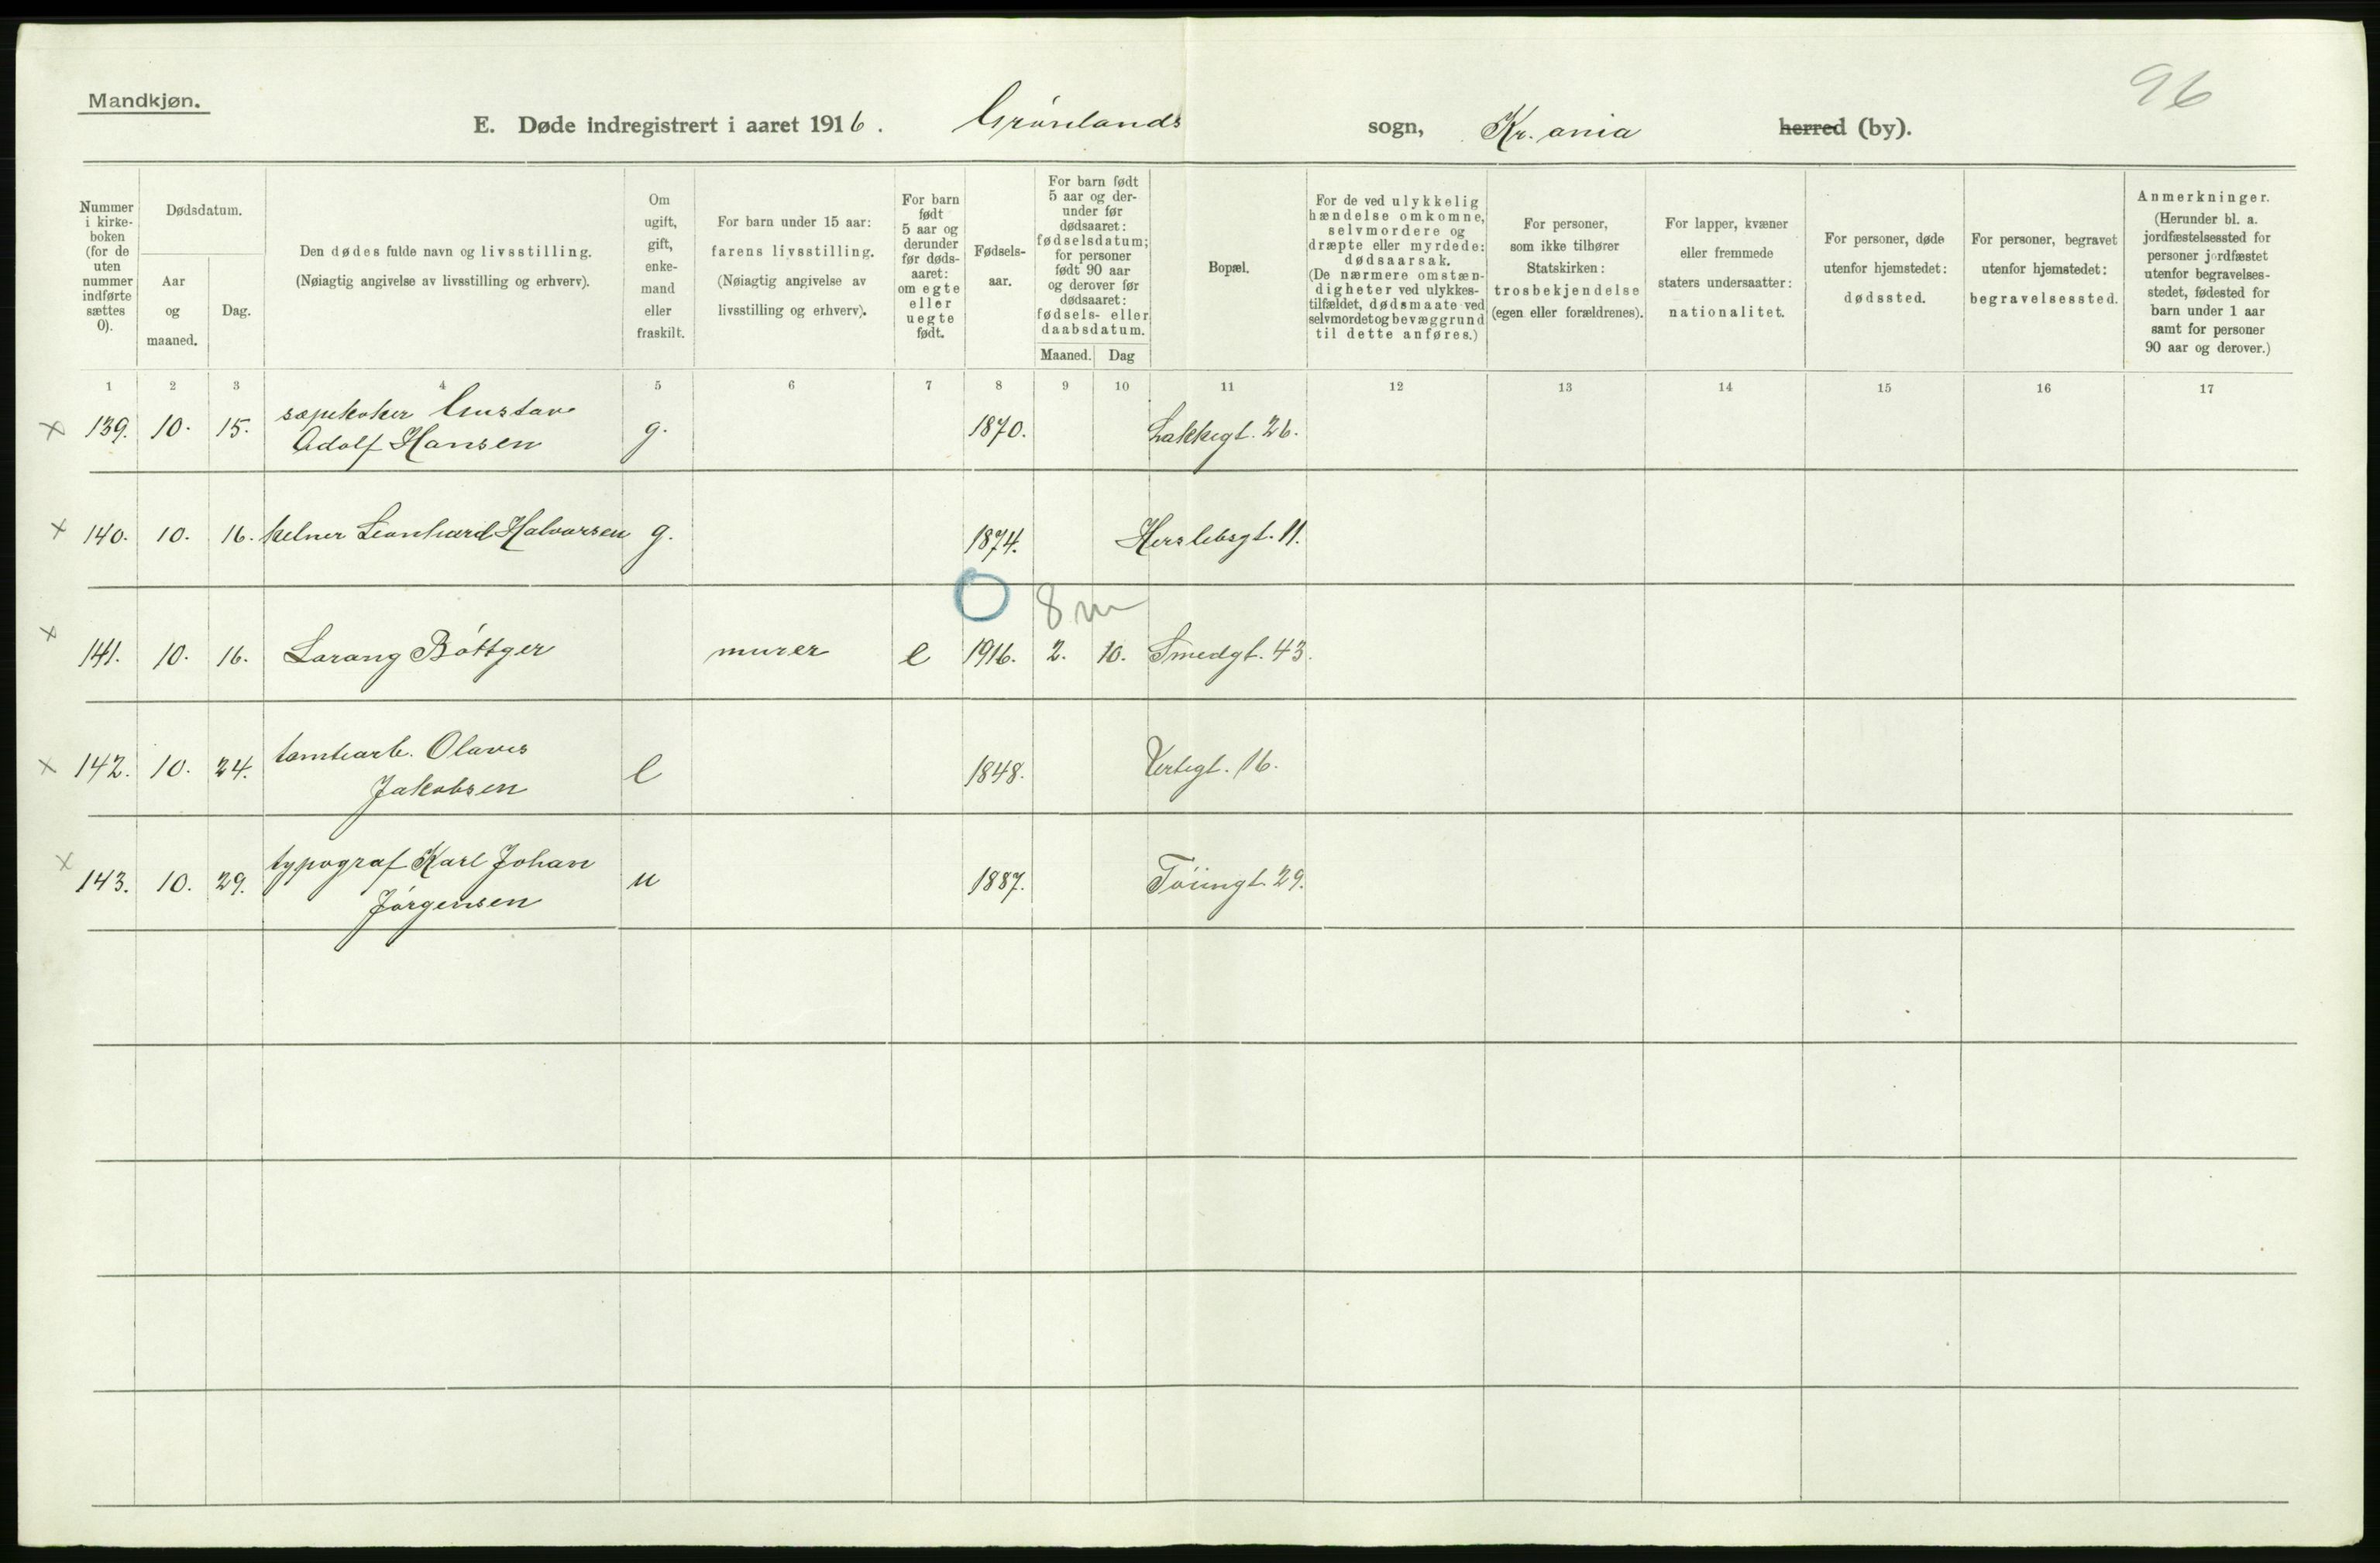 96
Mandkjøn.
E. Døde indregistrert i aaret 1916. Grønlands sogn, Kr.ania herred (by).
Nummer i kirke-boken (for de uten nummer indførte sættes 0).
Dødsdatum.
Aar og maaned.
Dag.
Den dødes fulde navn og livsstilling.
(Nøiagtig angivelse av livsstilling og erhverv).
Om ugift, gift, enke-mand eller fraskilt.
For barn under 15 aar:
farens livsstilling.
(Nøiagtig angivelse av
livsstilling og erhverv).
For barn født 5 aar og derunder før døds-aaret: om egte eller uegte født.
Fødsels-aar.
For barn født
5 aar og der-
under før
dødsaaret:
fødselsdatum;
for personer
født 90 aar
og derover før
dødsaaret:
fødsels- eller
daabsdatum.
Maaned. Dag
Bopæl.
For de ved ulykkelig
hændelse omkomne,
selvmordere og
dræpte eller myrdede:
dødsaarsak.
(De nærmere omstæn-
digheter ved ulykkes-
tilfældet, dødsmaate ved
selvmordet og bevæggrund
til dette anføres.)
For personer,
som ikke tilhører
Statskirken:
trosbekjendelse
(egen eller forældrenes).
For lapper, kvæner
eller fremmede
staters undersaatter:
nationalitet.
For personer, døde
utenfor hjemstedet:
dødssted.
For personer, begravet
utenfor hjemstedet:
begravelsessted.
Anmerkninger.
(Herunder bl. a.
jordfæstelsessted for
personer jordfæstet
utenfor begravelses-
stedet, fødested for
barn under 1 aar
samt for personer
90 aar og derover.)
1 2 3 4 5 6 7 8 9 10 11 12 13 14 15 16 17
x 139. 10. 15. sæpekoker Gustav
Adolf Hansen g. 1870. Lakkegt. 26.
x 140. 10. 16. kelner Leonhard Halvorsen g. 1874. Herslebsgt. 11.
0 8 m
x 141. 10. 16. Larang Böttger murer e 1916. 2. 10. Smedgt. 43.
x 142. 10. 24. tomtearb. Olaves
Jakobsen e 1848. Vertegt. 16.
x 143. 10. 29. typograf Karl Johan
Jörgensen u 1887. Töiengt. 29.